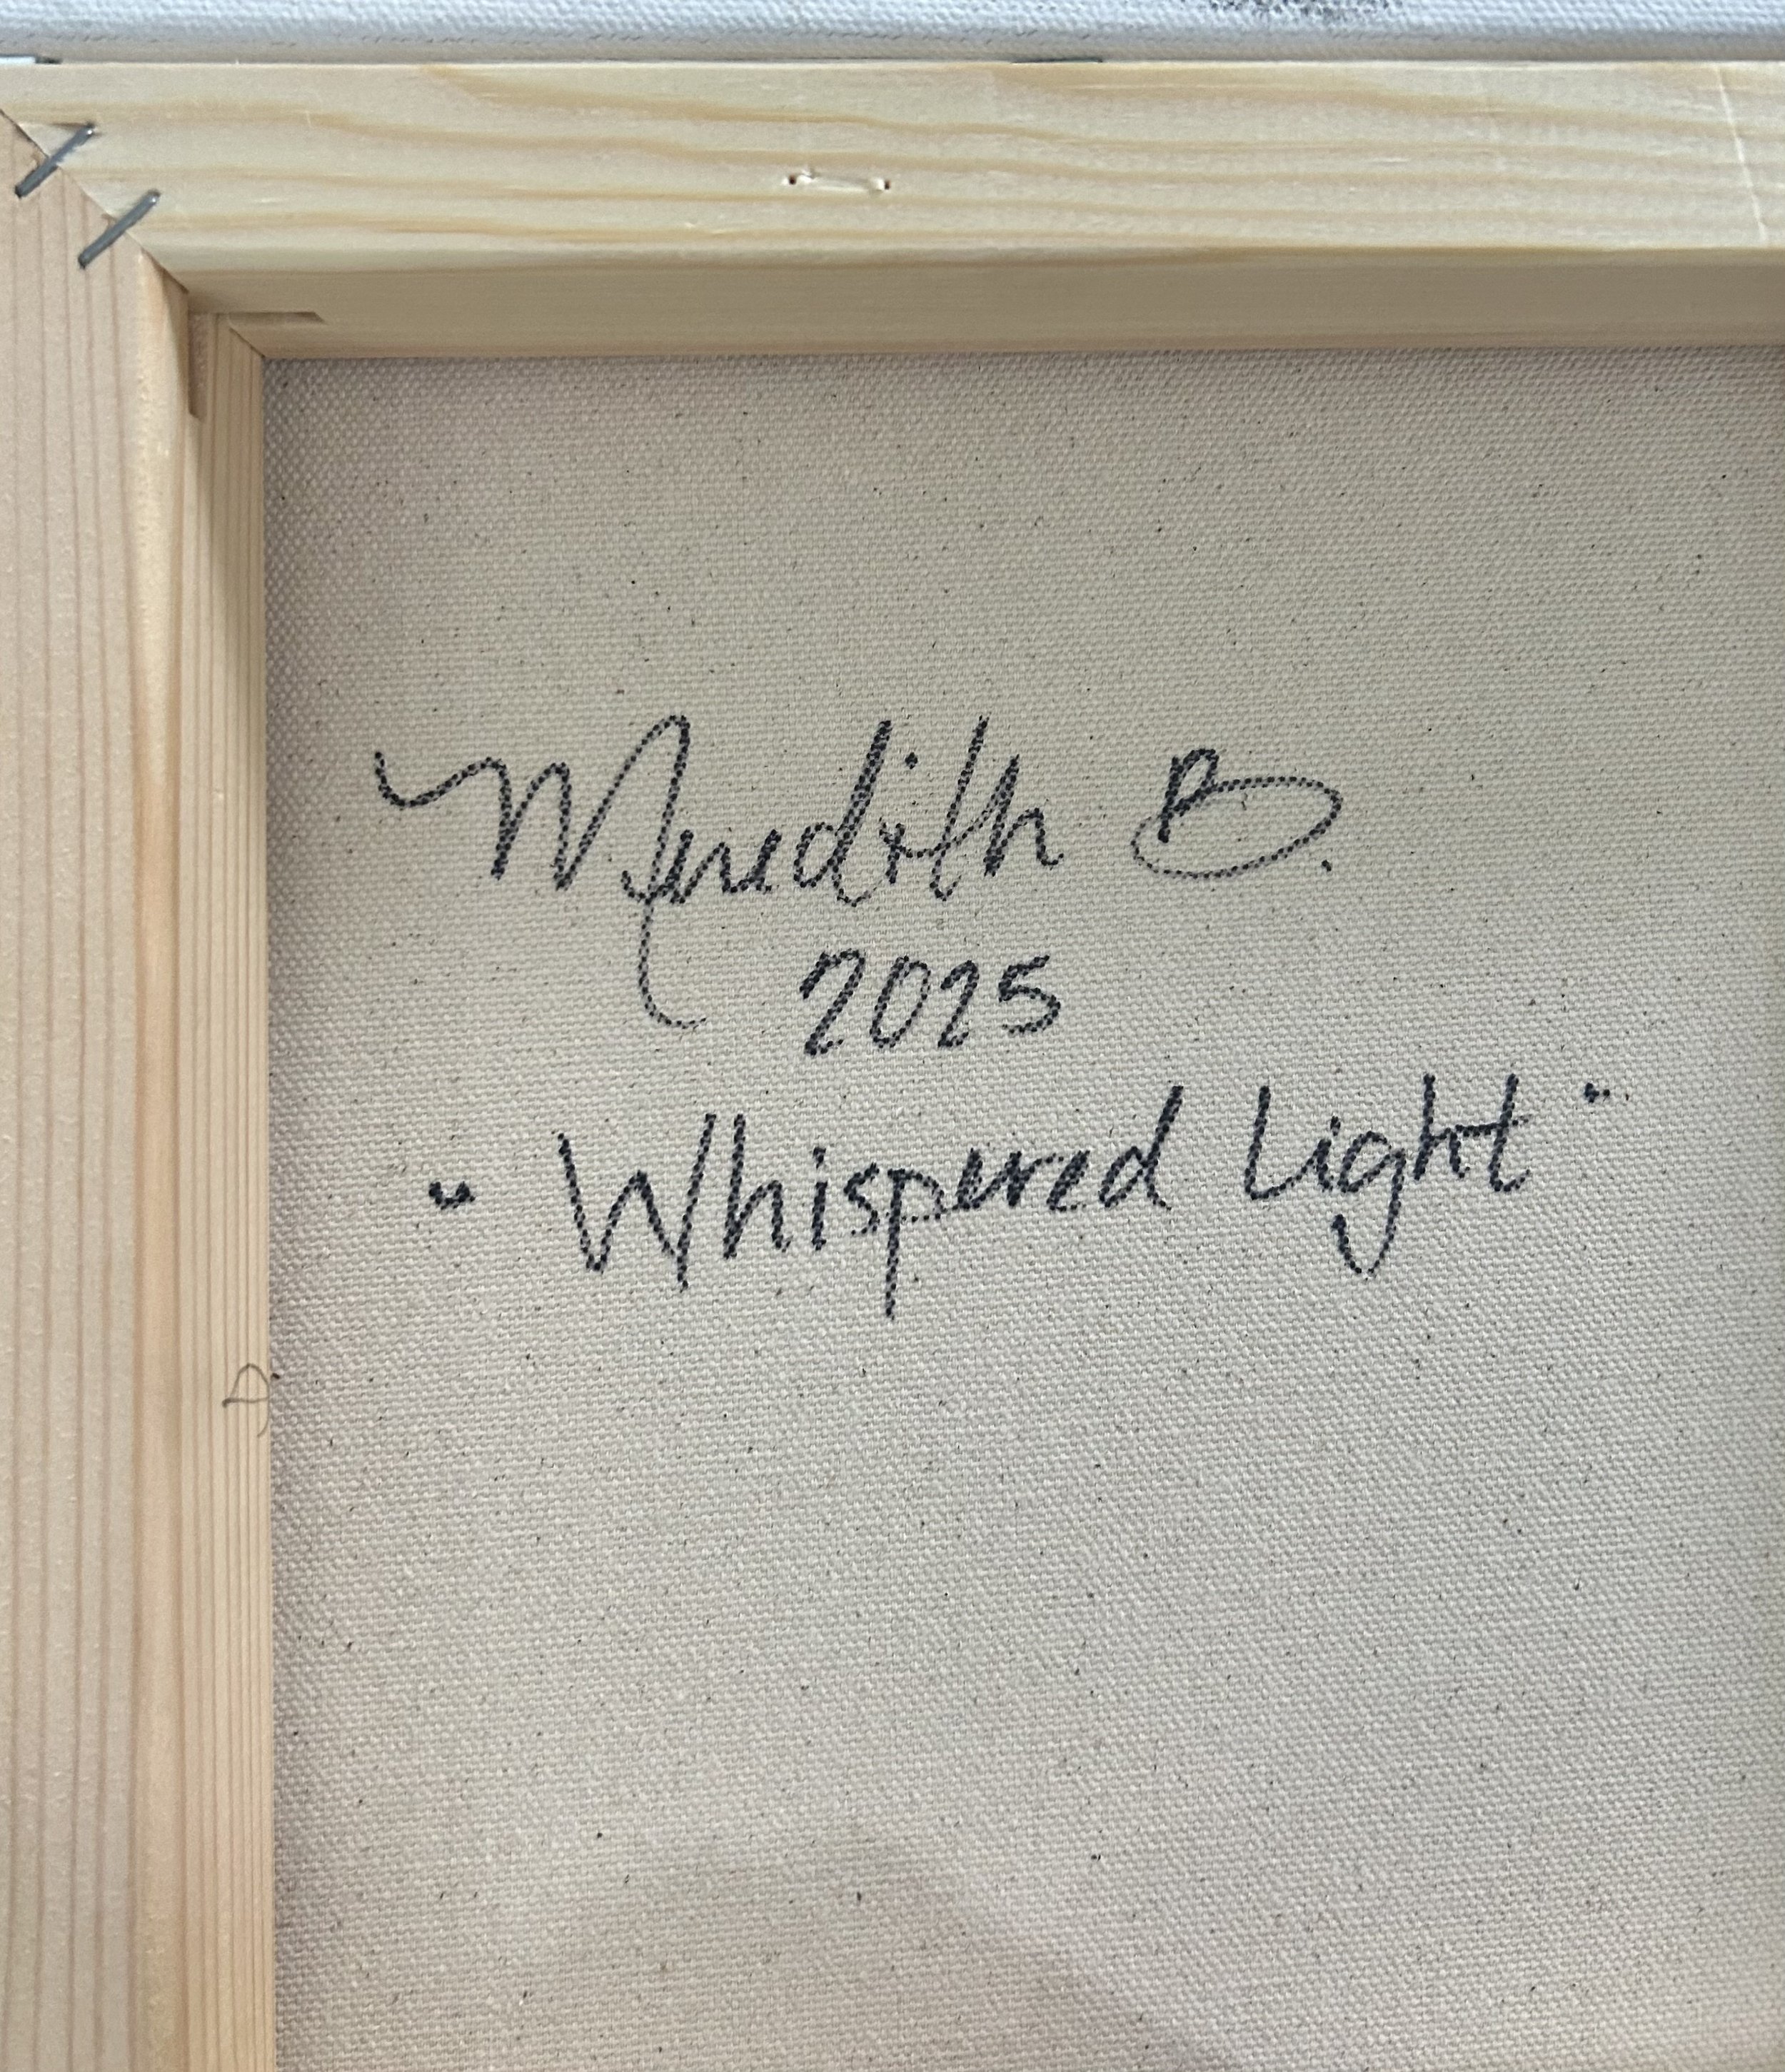 Meredith B.
2025
"Whispered Light"